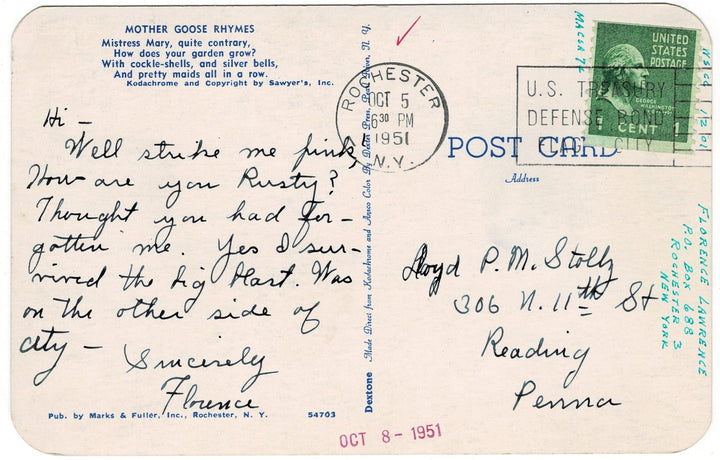 MOTHER GOOSE RHYMES
Mistress Mary, quite contrary,
How does your garden grow?
With cockle-shells, and silver bells,
And pretty maids all in a row.
Kodachrome and Copyright by Sawyer's, Inc.
Hi -
Well strike me pink,
How are you Rusty?
Thought you had for-
gotten me. Yes I sur-
vived the big blast. Was
on the other side of
city -
Sincerely
Florence
Pub. by Marks & Fuller, Inc., Rochester, N. Y.
54703
Dextone
Made Direct from Kodachrome and Ansco Color By Dexter Press, Pearl River, N. Y.
ROCHESTER
OCT 5
630 PM
1951
N.Y.
U.S. TREASURY
DEFENSE BOND
CITY
UNITED
STATES
POSTAGE
GEORGE
WASHINGTON
1 CENT
POST CARD
Address
Lloyd P. M. Stoltz
306 N. 11th St
Reading
Penna
FLORENCE LAWRENCE
P.O. BOX 688
ROCHESTER 3
NEW YORK
OCT 8 - 1951